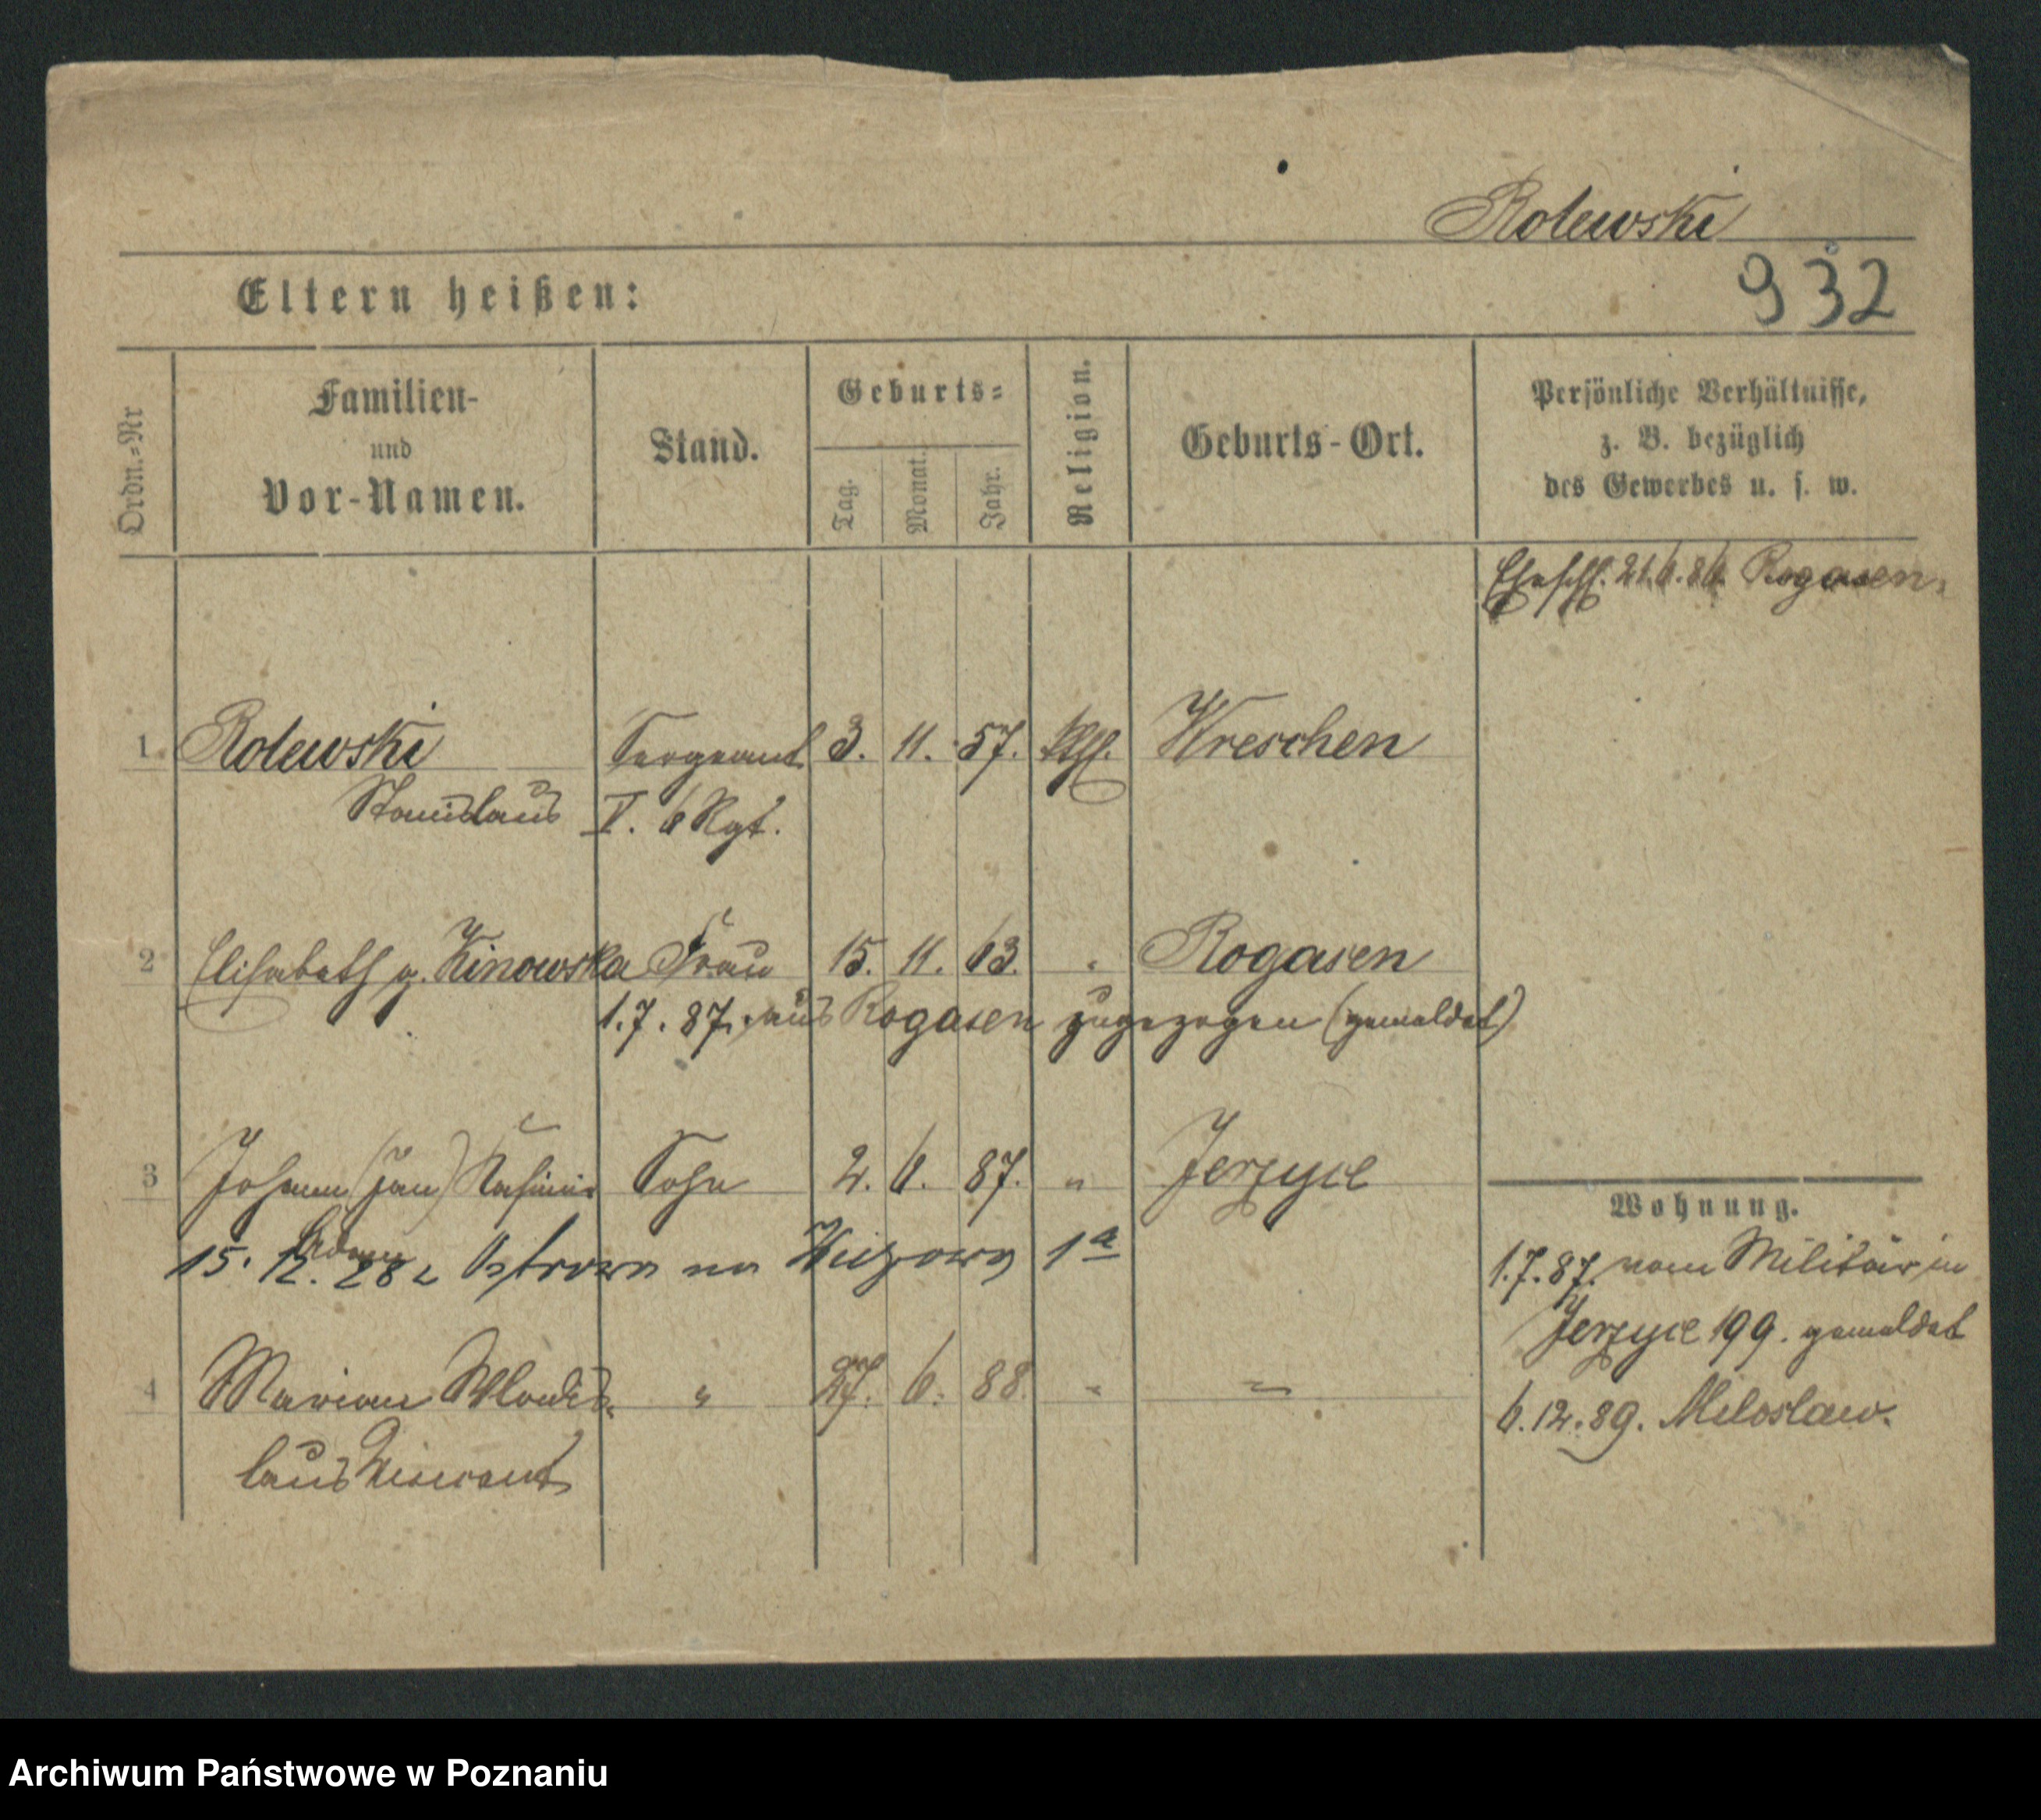 Rolewski
Eltern heißen:
932
Ordn.-Nr
Familien-
und
Vor-Namen.
Stand.
Geburts-
Tag.
Monat.
Jahr.
Religion.
Geburts-Ort.
Persönliche Verhältnisse,
z. B. bezüglich
des Gewerbes u. s. w.
Eheschl. 21.6.86 Rogasen.
1 Rolewski Sergeant 3. 11. 57. kth. Wreschen
Stanislaus V. 6 Rgt.
2 Elisabeth g. Kinowska Frau 15. 11. 63. " Rogasen
1.7.87. aus Rogasen zugezogen (gemeldet)
3 Johann (Jan) Kasimir Sohn 2. 6. 87. " Jerzyce
Adam
15. 12. 28 z Ostrowa na 1a
4 Marian Wladis- " 27. 6. 88. " "
laus Vincent
Wohnung.
1.7.87. vom Militär in
Jerzyce 199. gemeldet
6.12.89. Miloslaw.
Archiwum Państwowe w Poznaniu